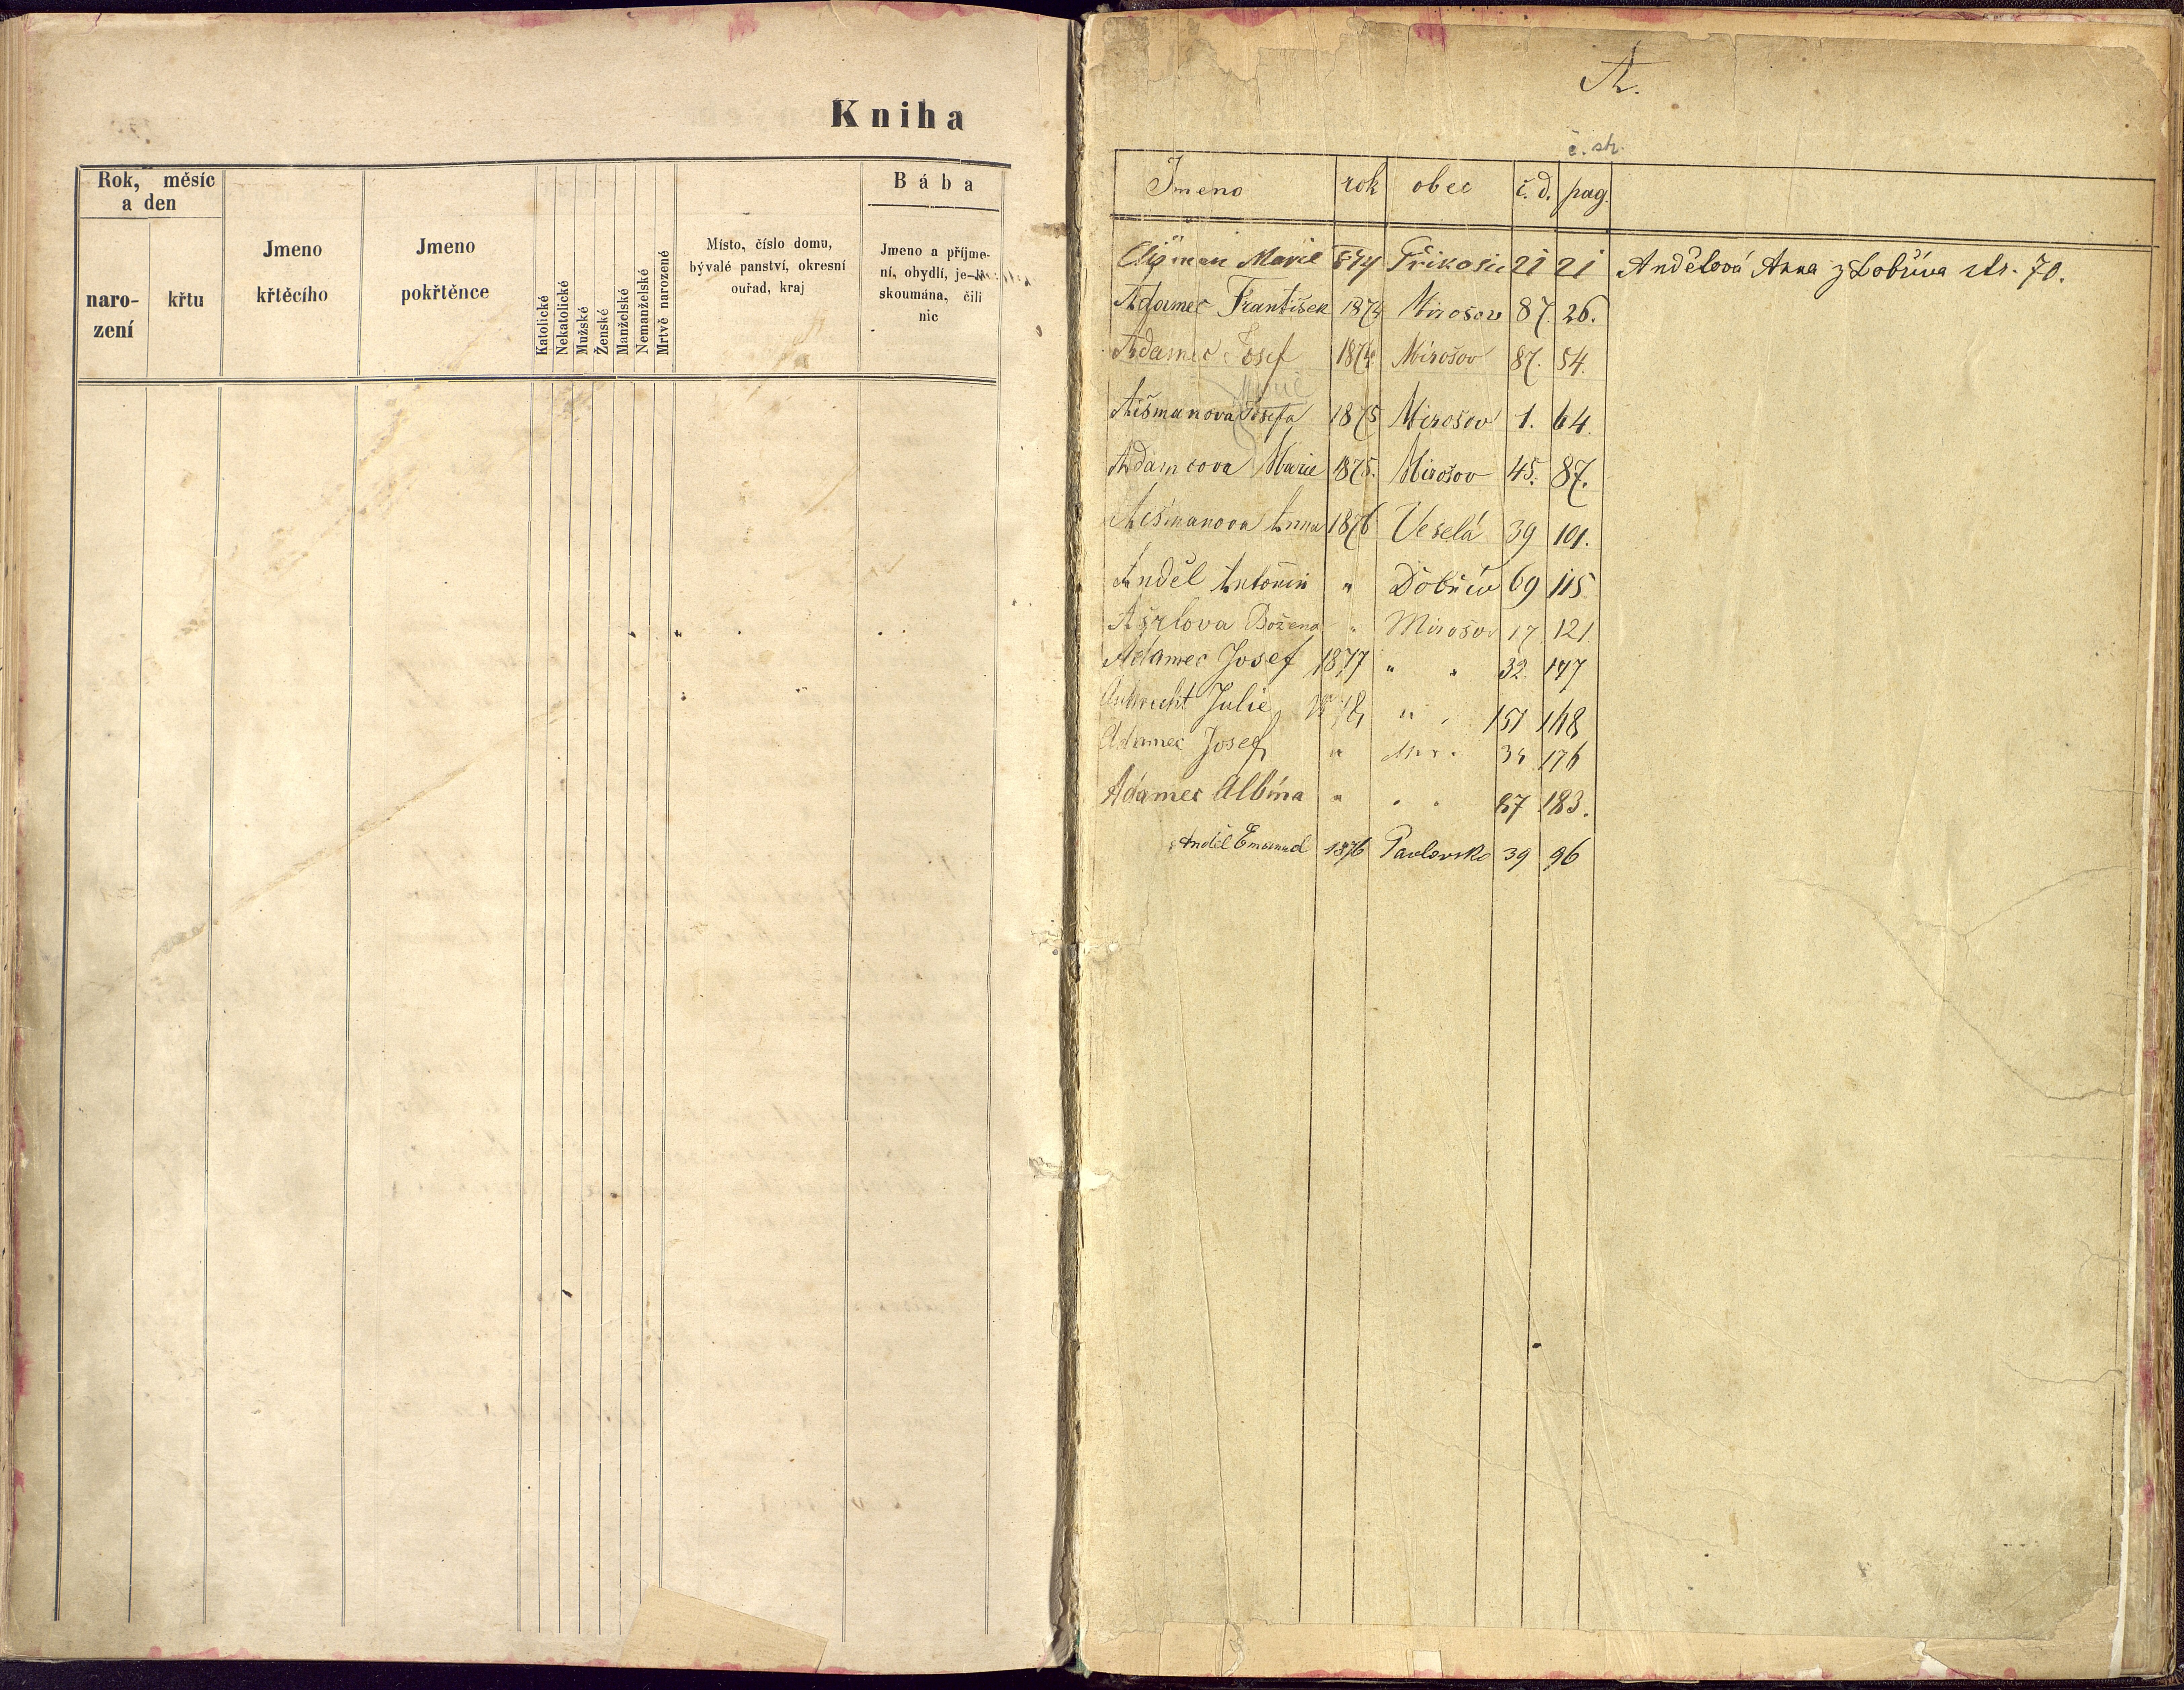 Kniha
Rok, měsíc
a den
naro-
zení
křtu
Jmeno
křtěcího
Jmeno
pokřtěnce
Katolické
Nekatolické
Mužské
Ženské
Manželské
Nemanželské
Mrtvě narozené
Místo, číslo domu,
bývalé panství, okresní
ouřad, kraj
Bába
Jmeno a příjme-
ní, obydlí, je-li
skoumána, čili
nic
A.
č. str.
Jmeno rok obec č. d. pag.
Marie 874 Příkosic 21 21 Andělová Anna z Dobříva str. 70.
Adamec František 1874 Mirošov 87. 26.
Adamec Josef 1874 Mirošov 87. 54.
Marie
Aišmanova Josefa 1875 Mirošov 1. 64.
Adamcova Marie 1875. Mirošov 45. 87.
Aišmanova Anna 1876 Veselá 39 101.
Anděl Antonín " Dobřív 69 115
Božena " Mirošov 17. 121.
Adamec Josef 1877 " " 32. 147
Julie 1878 " " 151 148
Adamec Josef " Mir. 34 176
Adamec Albína " " " 87 183.
Anděl Emanuel 1876 Pavlovsko 39 96